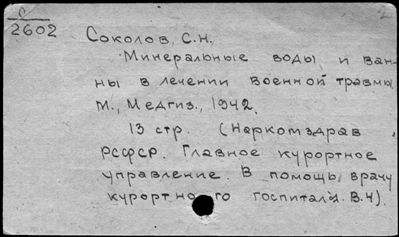 С
2602
Соколов, С.Н.
Минеральные воды и ван-
ны в лечении военной травмы.
М., Медгиз, 1942.
13 стр. (Наркомздрав
РСФСР. Главное курортное
управление. В помощь врачу
курортного госпиталя. В.4).